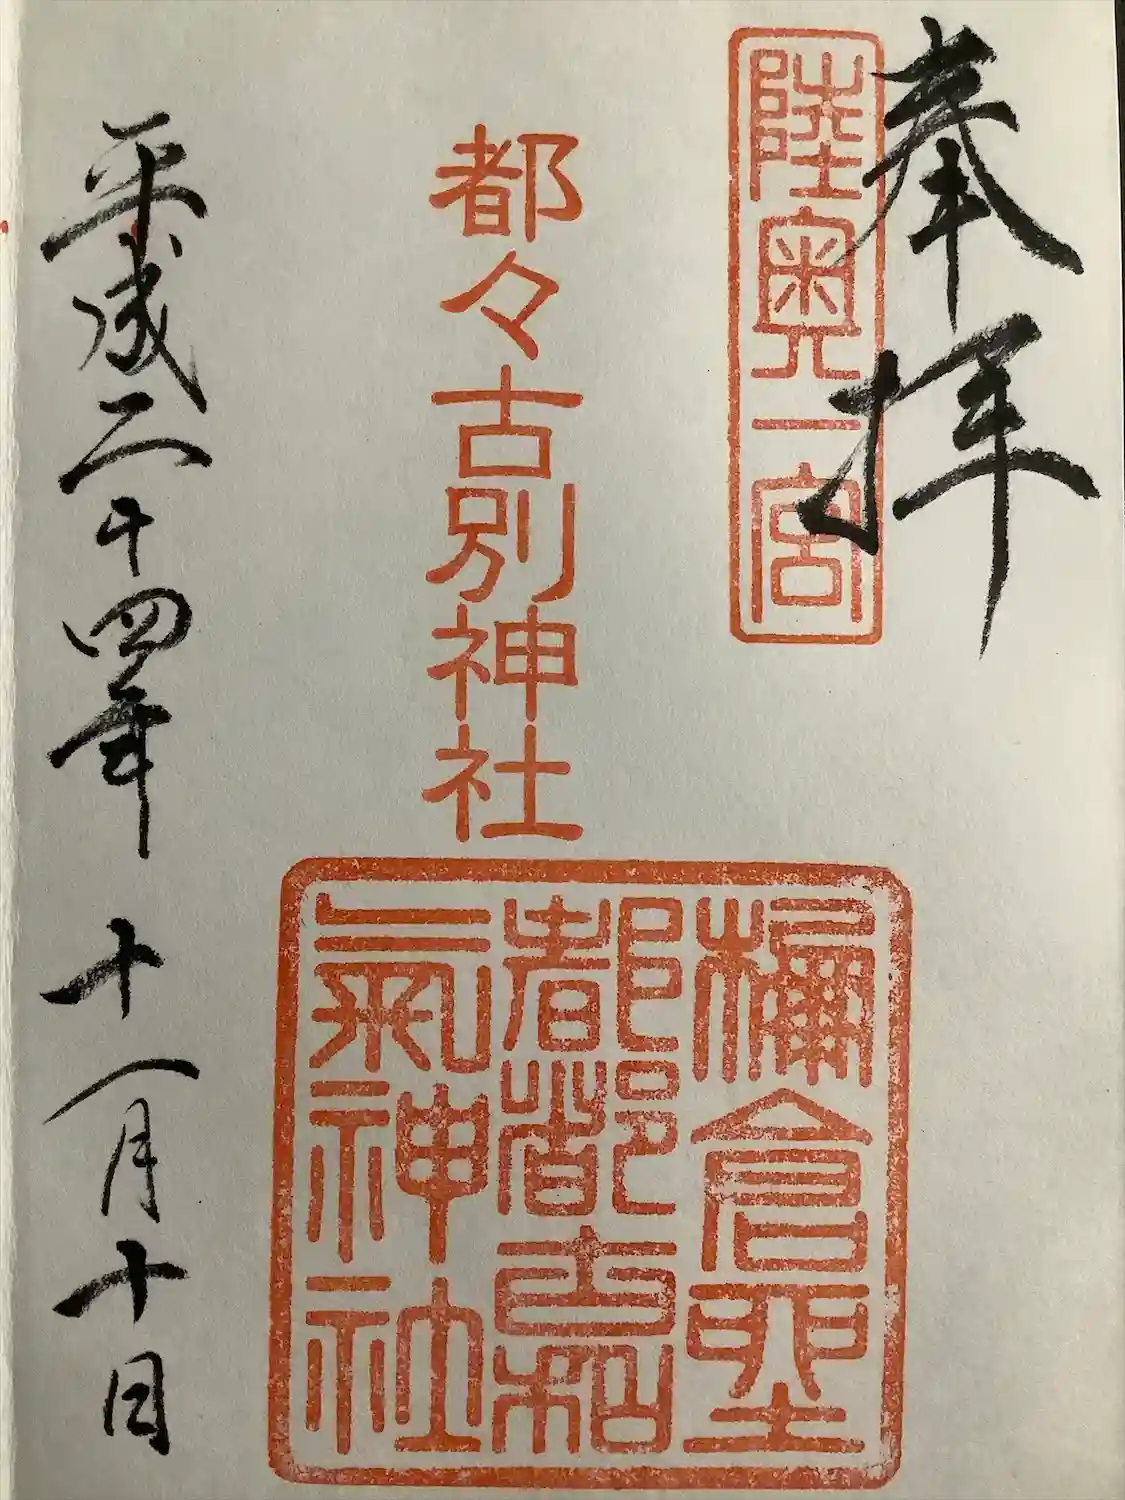 奉拝
陸奥一宮
都々古別神社
倉坐
都都古和
氣神社
平成二十四年 十一月十日